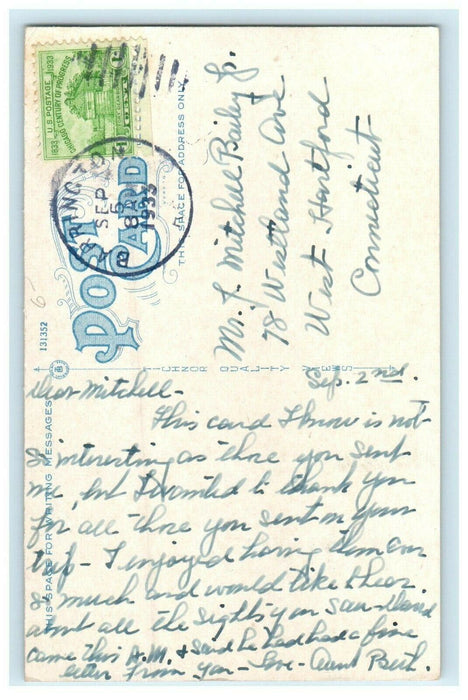 U.S. POSTAGE 1933
CHICAGO CENTURY OF PROGRESS
1833 1933
SEP
5
8 AM
1933
POST CARD
THIS SPACE FOR ADDRESS ONLY
131352
THIS SPACE FOR WRITING MESSAGES
QUALITY VIEWS
Mr. J. Mitchell Baily Jr.
78 Westland Ave
West Hartford
Connecticut
Sep. 2nd.
Dear Mitchell-
This card I know is not
so interesting as those you sent
me, but I wanted to thank you
for all those you sent on your
trip - I enjoyed having them ever
so much and would like to hear
about all the sights you saw -
came this A.M. & said he had had a fine
letter from you - Love - Aunt Beth.